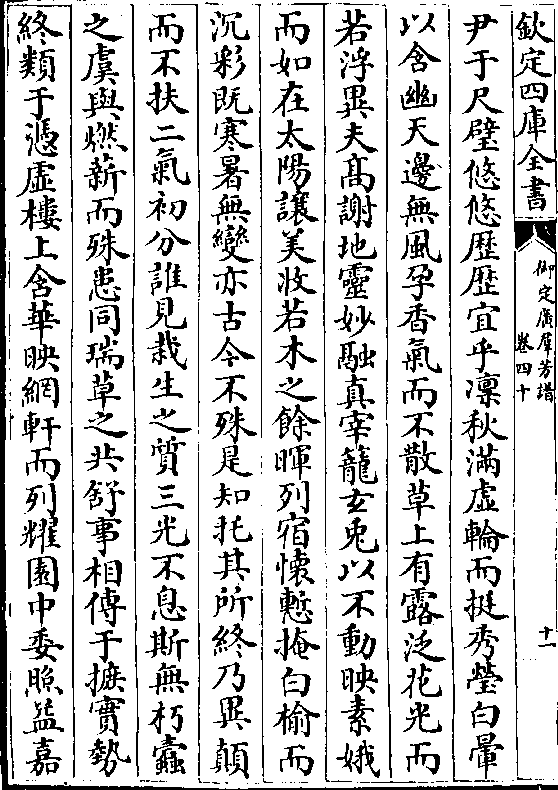 欽定四庫全書
御定廣羣芳譜
卷四十
十一
尹于尺璧悠悠歴歴宜乎凛秋滿虛輪而挺秀瑩白暈
以含幽天邊無風孕香氣而不散草上有露泛花光而
若浮異夫髙謝地靈妙融真宰籠玄兎以不動映素娥
而如在太陽讓美收若木之餘暉列宿懐慙掩白榆而
沉彩既寒暑無變亦古今不殊是知托其所終乃異顛
而不扶二氣初分誰見栽生之質三光不息斯無朽蠹
之虞與燃薪而殊患同瑞草之共舒事相傳于摭實勢
終類于憑虛樓上含華映網軒而列耀園中委照益嘉